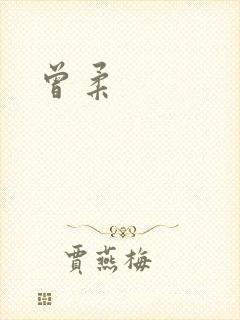 曾柔
賈燕梅